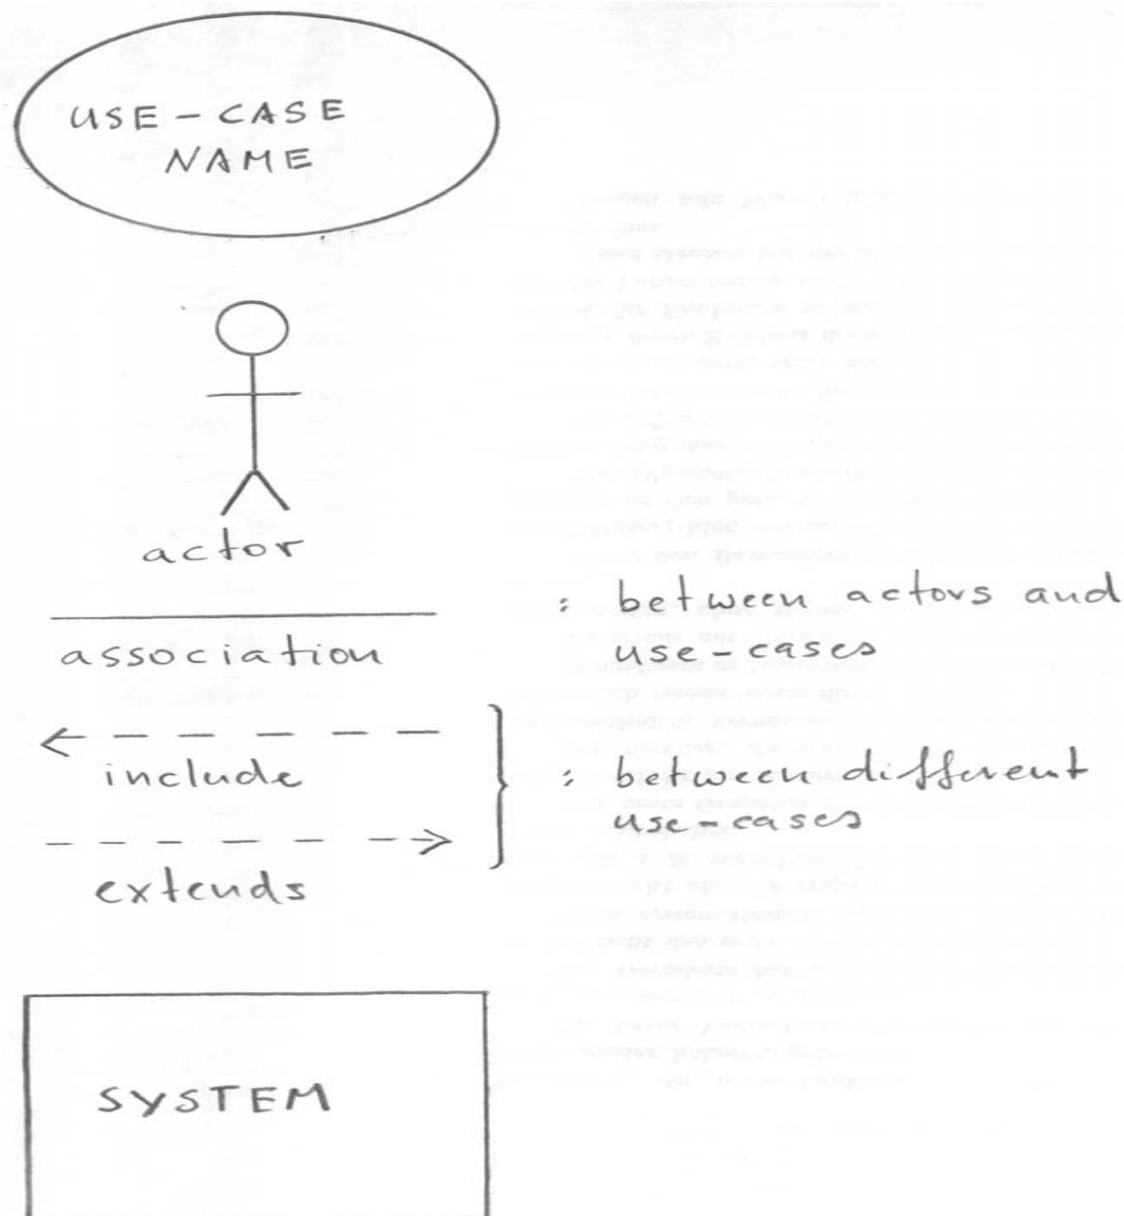 USE-CASE
NAME
actor
association
: between actors and
use-cases
include
extends
: between different
use-cases
SYSTEM